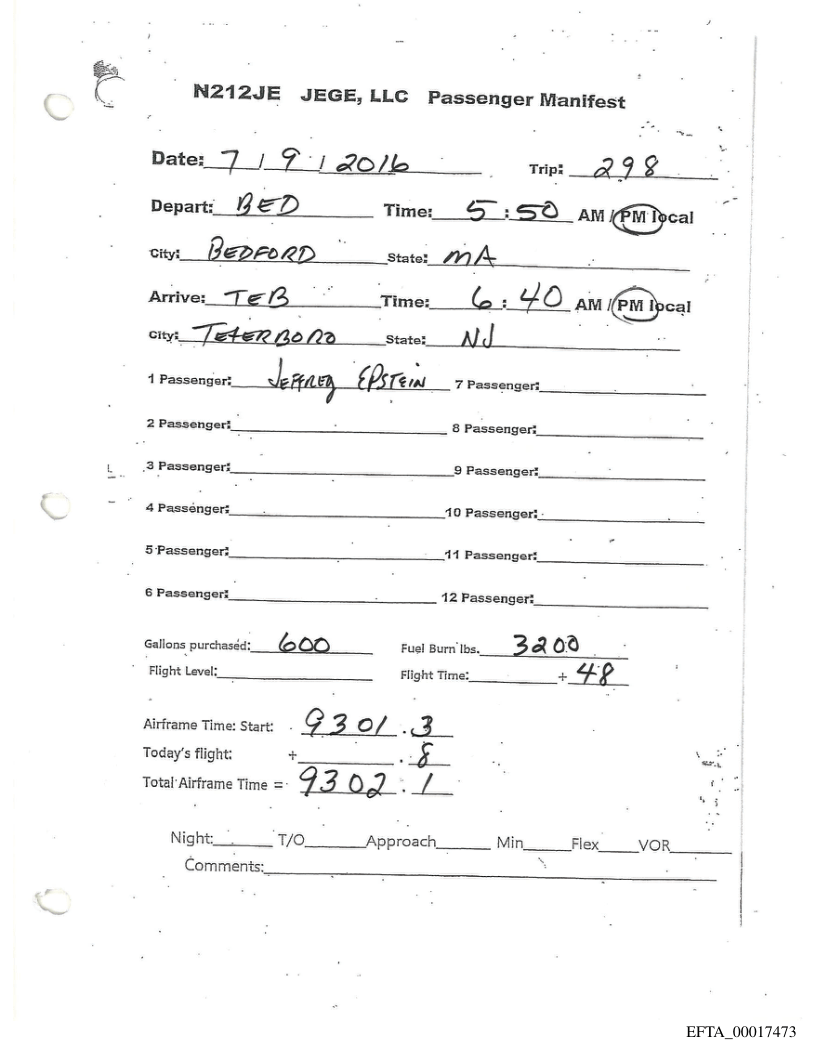 N212JE JEGE, LLC Passenger Manifest
Date: 7 / 9 / 2016 Trip: 298
Depart: BED Time: 5 : 50 AM / PM local
City: BEDFORD State: MA
Arrive: TEB Time: 6 : 40 AM / PM local
City: TETERBORO State: NJ
1 Passenger: JEFFREY EPSTEIN 7 Passenger:
2 Passenger: 8 Passenger:
3 Passenger: 9 Passenger:
4 Passenger: 10 Passenger:
5 Passenger: 11 Passenger:
6 Passenger: 12 Passenger:
Gallons purchased: 600 Fuel Burn lbs. 3200
Flight Level: Flight Time: + 48
Airframe Time: Start: 9301 . 3
Today's flight: + . 8
Total Airframe Time = 9302 . 1
Night: T/O Approach Min Flex VOR
Comments:
EFTA_00017473